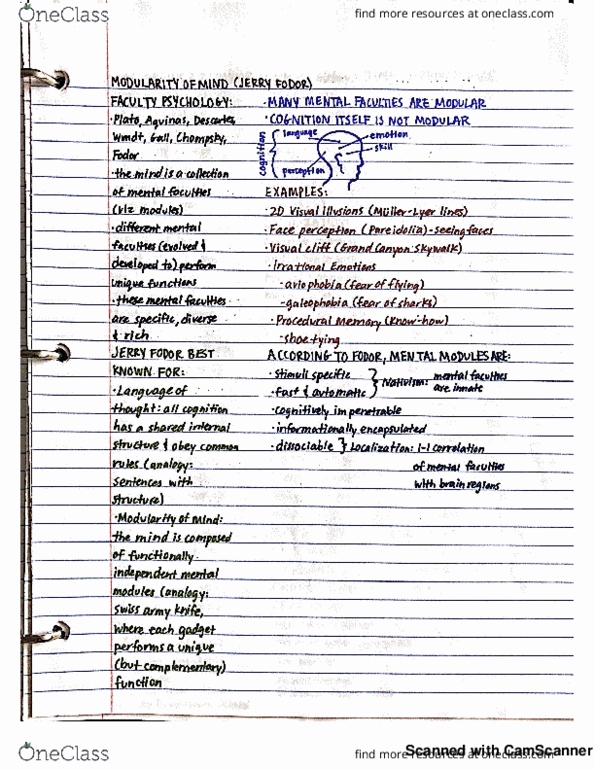 OneClass
find more resources at oneclass.com
MODULARITY OF MIND (JERRY FODOR)
FACULTY PSYCHOLOGY:
·Plato, Aquinas, Descartes,
Wundt, Gall, Chompsky,
Fodor
·the mind is a collection
of mental faculties
(viz modules)
·different mental
faculties (evolved &
developed to) perform
unique functions
·these mental faculties
are specific, diverse
& rich
JERRY FODOR BEST
KNOWN FOR:
·Language of
thought: all cognition
has a shared internal
structure & obey common
rules (analogy:
sentences with
structure)
·Modularity of mind:
the mind is composed
of functionally
independent mental
modules (analogy:
swiss army knife,
where each gadget
performs a unique
(but complementary)
function
·MANY MENTAL FACULTIES ARE MODULAR
·COGNITION ITSELF IS NOT MODULAR
cognition
language
perception
emotion
skill
EXAMPLES:
·2D Visual illusions (Müller-Lyer lines)
·Face perception (Pareidolia)-seeing faces
·Visual cliff (Grand Canyon Skywalk)
·Irrational Emotions
-aviophobia (fear of flying)
-galeophobia (fear of sharks)
·Procedural Memory (Know-how)
-shoe tying
ACCORDING TO FODOR, MENTAL MODULES ARE:
·stimuli specific
·fast & automatic } Nativism: mental faculties
are innate
·cognitively impenetrable
·informationally encapsulated
·dissociable } Localization: 1-1 correlation
of mental faculties
with brain regions
OneClass
find more resources at oneclass.com
Scanned with CamScanner